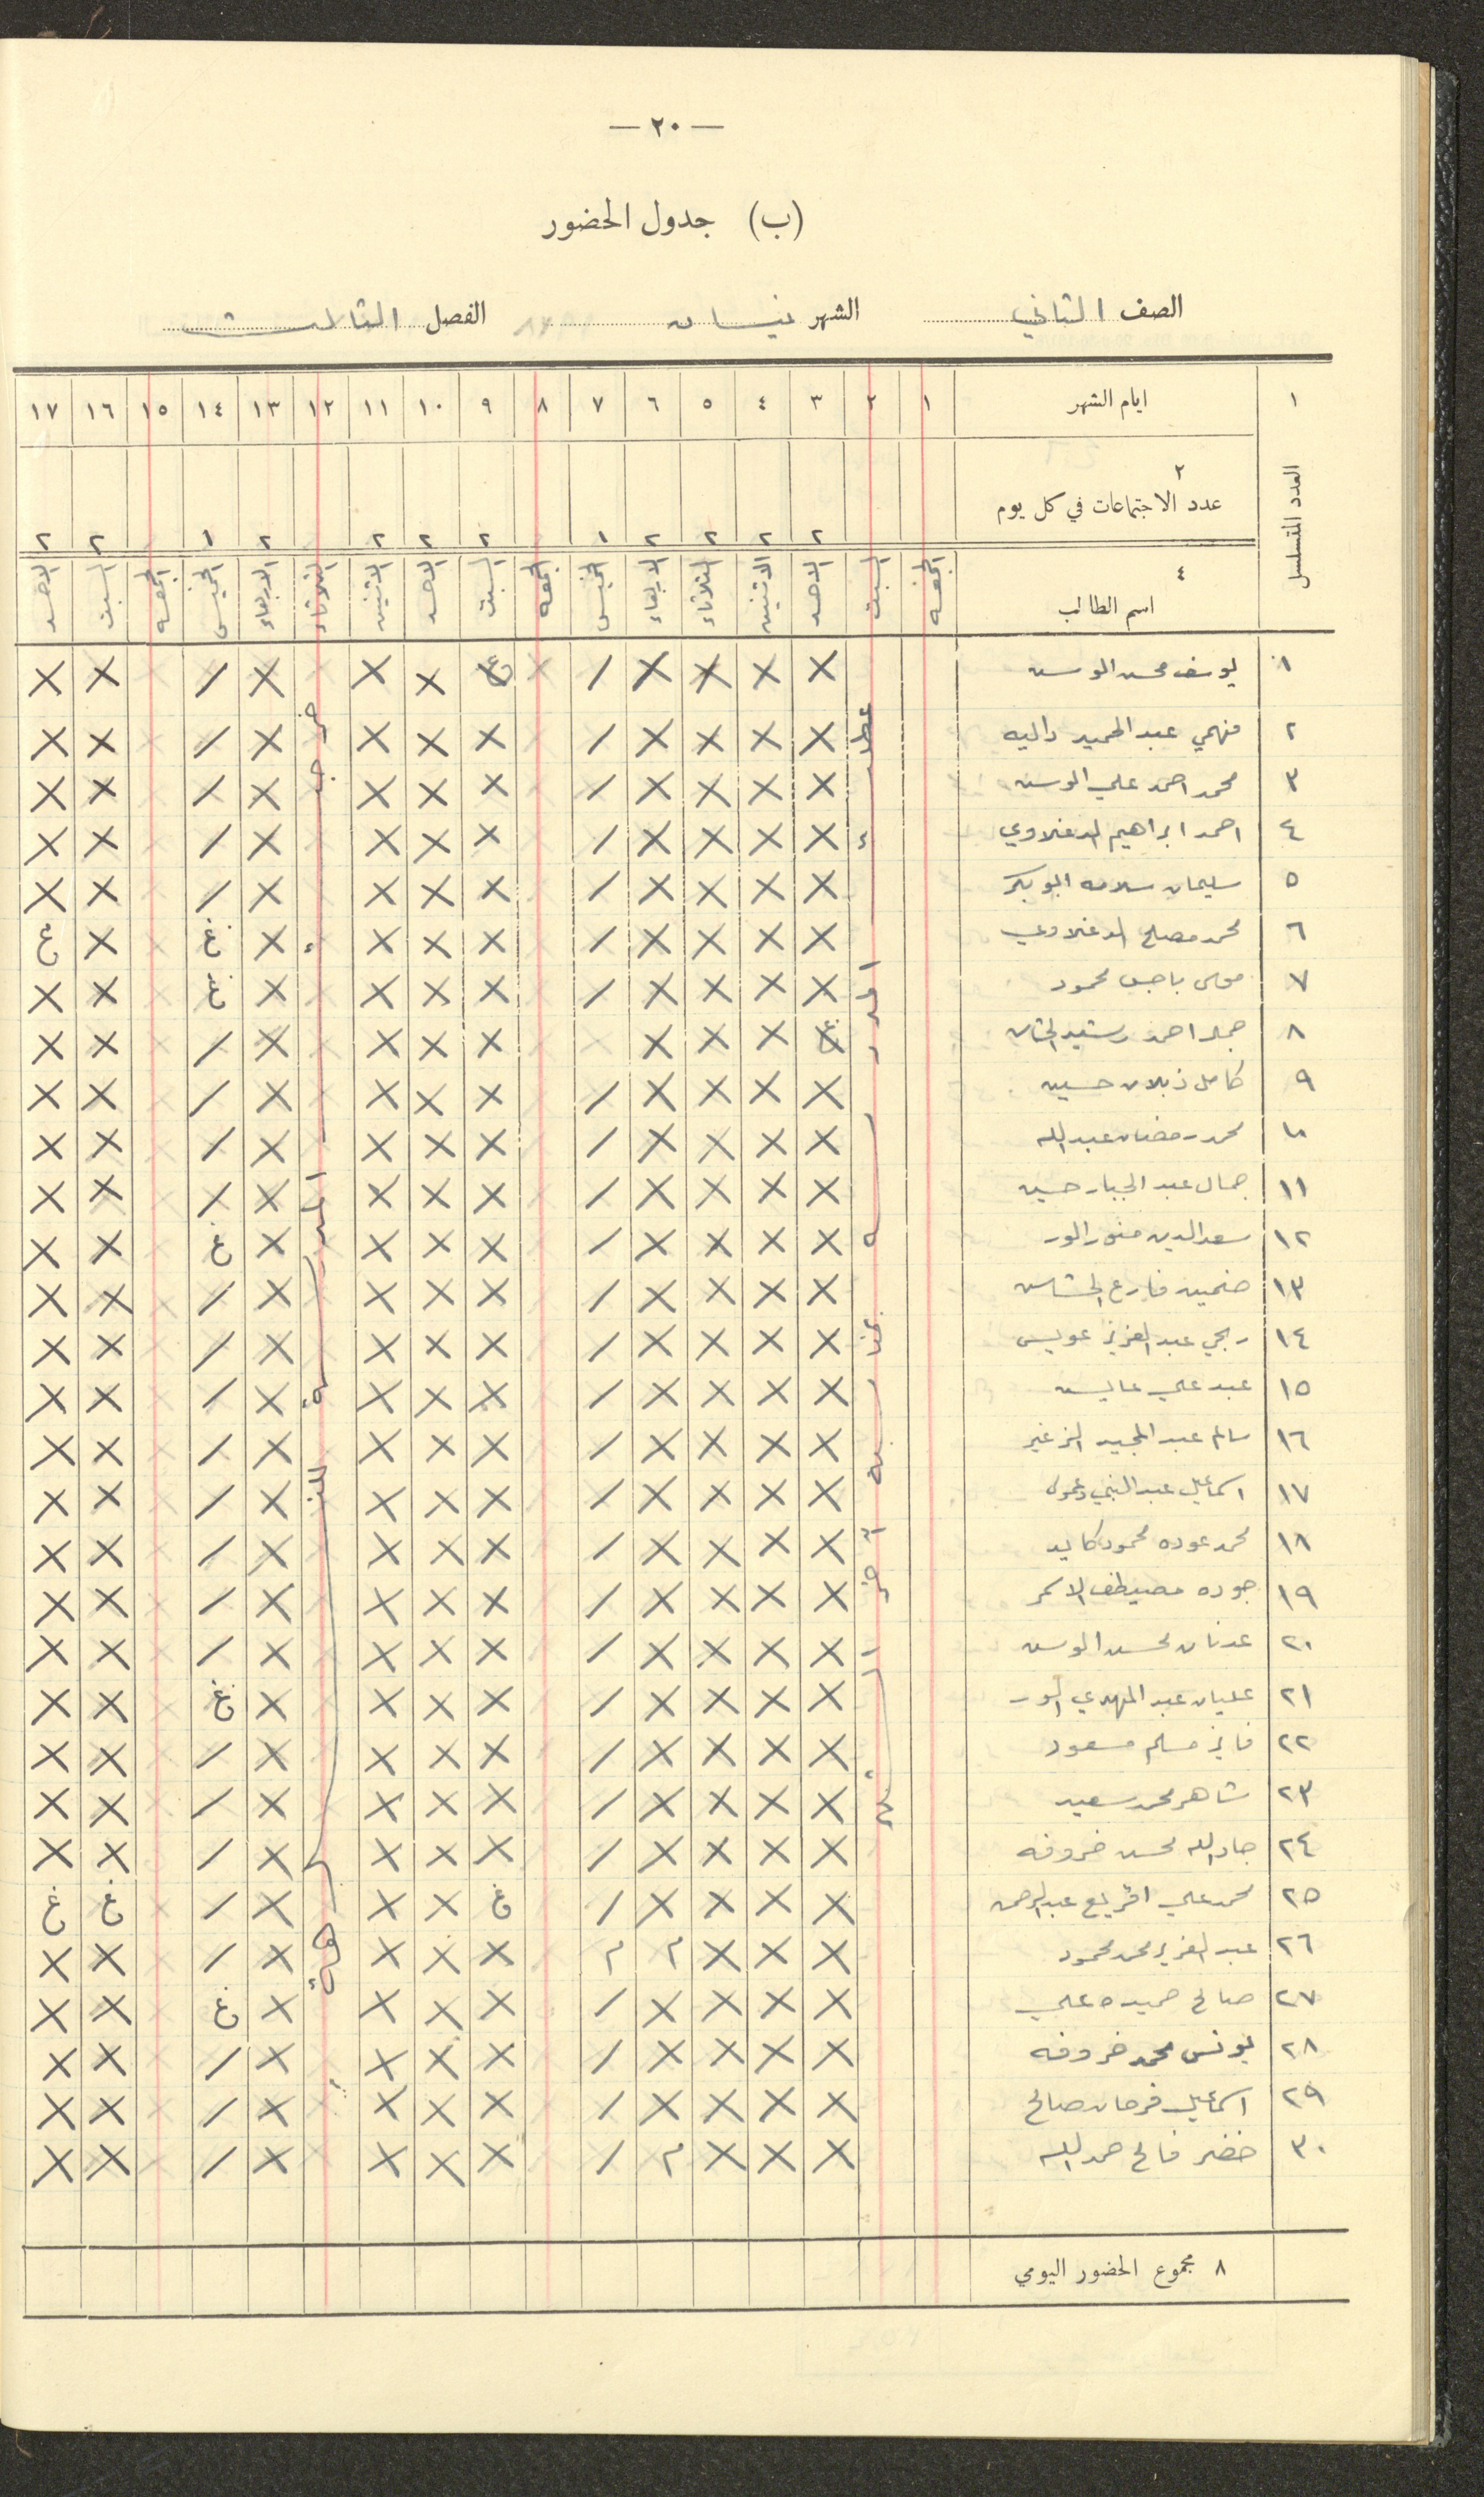 — ٢٠ —
(ب) جدول الحضور
الصف الثاني الشهر نيسان الفصل الثالث
١ ايام الشهر ١ ٢ ٣ ٤ ٥ ٦ ٧ ٨ ٩ ١٠ ١١ ١٢ ١٣ ١٤ ١٥ ١٦ ١٧
العدد المتسلسل
٢
عدد الاجتماعات في كل يوم ٢ ٢ ٢ ٢ ١ ٢ ٢ ٢ ٢ ١ ٢ ٢
٤
اسم الطالب الجمعه السبت الاحد الاثنين الثلاثاء الاربعاء الخميس الجمعه السبت الاحد الاثنين الثلاثاء الاربعاء الخميس الجمعه السبت الاحد
عطلة المدرسة بمناسبة
المدرسة
١ يوسف محسن الوسن X X X X / غ X X X / X X
٢ فهمي عبد الحميد داليه X X X X / X X X X / X X
٣ محمد احمد علي الوسن X X X X / X X X X / X X
٤ احمد ابراهيم الدغلاوي X X X X / X X X X / X X
٥ سليمان سلامه ابو بكر X X X X / X X X X / X X
٦ محمد مصلح الدغلاوي X X X X / X X X X غ X غ
٧ موسى باجس محمود X X X X / X X X X غ X X
٨ احمد رشيد غ X X X X X X X / X X
٩ كامل ذبلان حسين X X X X / X X X X / X X
١٠ محمد رمضان عبد الله X X X X / X X X X / X X
١١ جمال عبد الجبار حسين X X X X / X X X X / X X
١٢ سعد الدين X X X X / X X X X غ X X
١٣ فارع X X X X / X X X X / X X
١٤ ربحي عبد العزيز عويس X X X X / X X X X / X X
١٥ عبد علي X X X X / X X X X / X X
١٦ سالم عبد المجيد الزغير X X X X / X X X X / X X
١٧ اسماعيل عبد النبي X X X X / X X X X / X X
١٨ محمد عوده محمود كايد X X X X / X X X X / X X
١٩ جوده مصيطف الاسمر X X X X / X X X X / X X
٢٠ عدنان محسن الوسن X X X X / X X X X / X X
٢١ عليان عبد المهدي X X X X / X X X X غ X X
٢٢ فايز مسلم مسعود X X X X / X X X X / X X
٢٣ شاهر محمد سعيد X X X X / X X X X / X X
٢٤ جاد الله محسن خروفه X X X X / X X X X / X X
٢٥ محمد علي افريع عبد الرحمن X X X X / غ X X X / غ غ
٢٦ عبد العزيز محمد محمود X X X م م X X X X / X X
٢٧ صالح حميده علي X X X X / X X X X غ X X
٢٨ يونس محمد خروفه X X X X / X X X X / X X
٢٩ اسماعيل فرحان صالح X X X X / X X X X / X X
٣٠ خضر فالح حمد الله X X X م / X X X X / X X
٨ مجموع الحضور اليومي